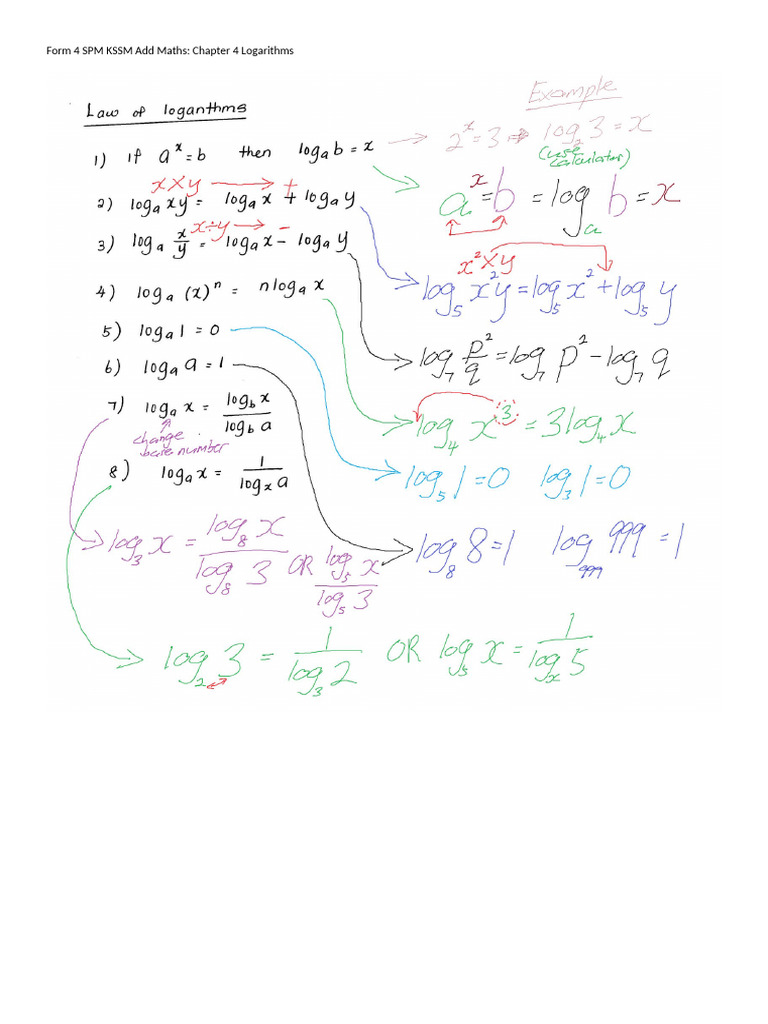 Form 4 SPM KSSM Add Maths: Chapter 4 Logarithms
Example
Law of logarithms
1) If aˣ = b then logₐ b = x → 2ˣ = 3 ⇒ log₂ 3 = x
(use calculator)
aˣ = b = logₐ b = x
x × y → +
2) logₐ xy = logₐ x + logₐ y
x ÷ y → −
3) logₐ x/y = logₐ x − logₐ y
x² × y
log₅ x²y = log₅ x² + log₅ y
4) logₐ (x)ⁿ = n logₐ x
5) logₐ 1 = 0
log₇ p²/q = log₇ p² − log₇ q
6) logₐ a = 1
7) logₐ x = log_b x / log_b a
change base number
log₄ x³ = 3 log₄ x
8) logₐ x = 1 / logₓ a
log₅ 1 = 0 log₃ 1 = 0
log₃ x = log₈ x / log₈ 3 OR log₅ x / log₅ 3
log₈ 8 = 1 log₉₉₉ 999 = 1
log₂ 3 = 1 / log₃ 2 OR log₅ x = 1 / logₓ 5